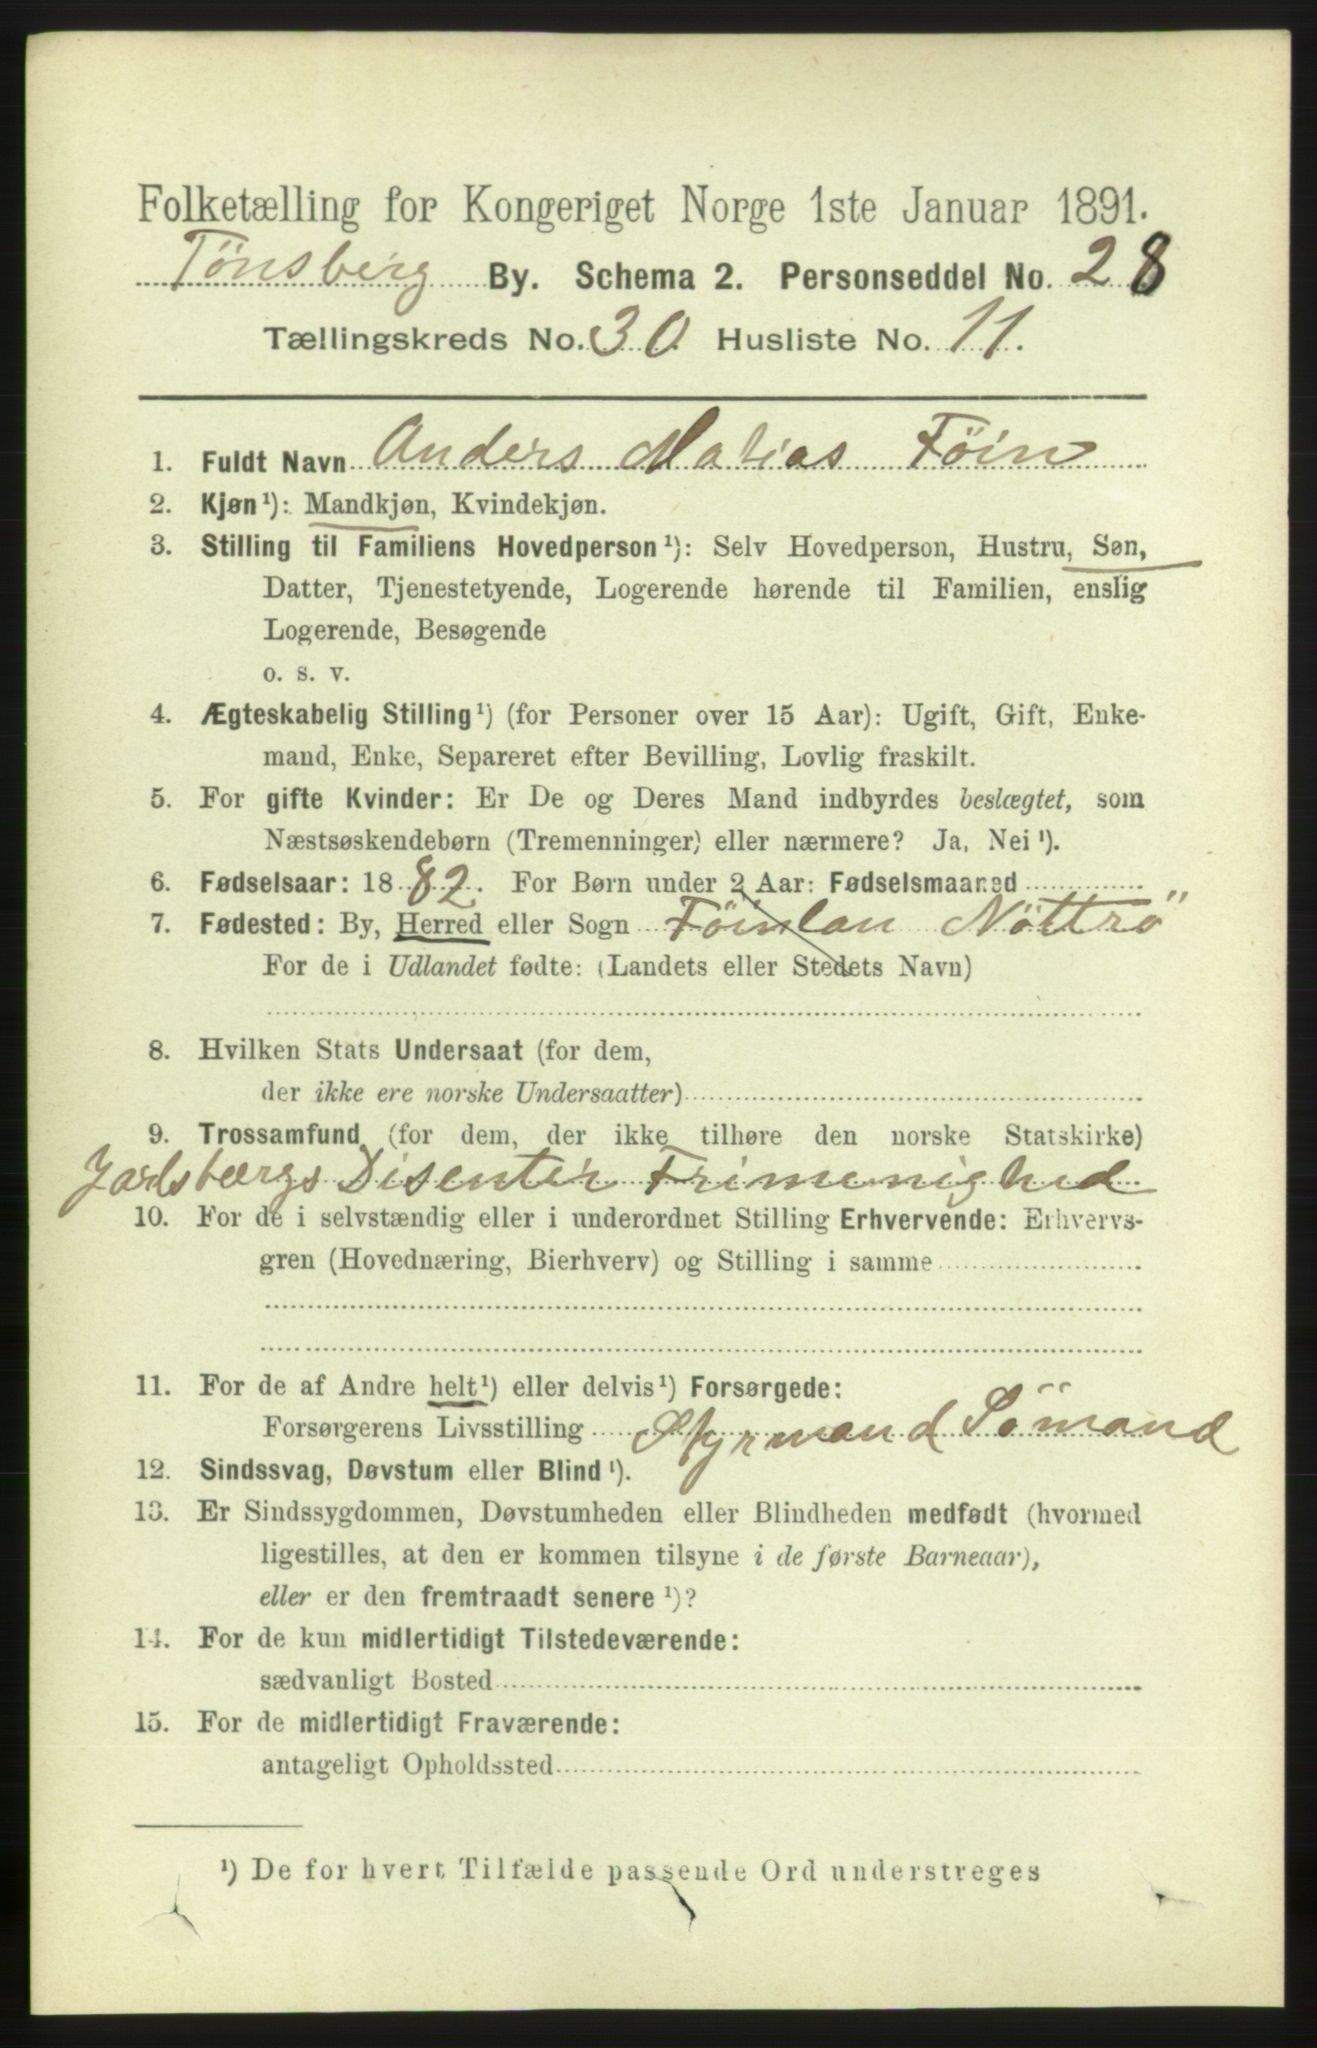 Folketælling for Kongeriget Norge 1ste Januar 1891.
Tönsberg By. Schema 2. Personseddel No. 28
Tællingskreds No. 30 Husliste No. 11.
1. Fuldt Navn Anders Matias Föin
2. Kjøn¹): Mandkjøn, Kvindekjøn.
3. Stilling til Familiens Hovedperson¹): Selv Hovedperson, Hustru, Søn,
Datter, Tjenestetyende, Logerende hørende til Familien, enslig
Logerende, Besøgende
o. s. v.
4. Ægteskabelig Stilling¹) (for Personer over 15 Aar): Ugift, Gift, Enke-
mand, Enke, Separeret efter Bevilling, Lovlig fraskilt.
5. For gifte Kvinder: Er De og Deres Mand indbyrdes beslægtet, som
Næstsøskendebørn (Tremenninger) eller nærmere? Ja, Nei¹).
6. Fødselsaar: 1882. For Børn under 2 Aar: Fødselsmaaned
7. Fødested: By, Herred eller Sogn Föinlan Nöttrö
For de i Udlandet fødte: (Landets eller Stedets Navn)
8. Hvilken Stats Undersaat (for dem,
der ikke ere norske Undersaatter)
9. Trossamfund (for dem, der ikke tilhøre den norske Statskirke)
Jarlsbærgs Disenter Frimenighed
10. For de i selvstændig eller i underordnet Stilling Erhvervende: Erhvervs-
gren (Hovednæring, Bierhverv) og Stilling i samme
11. For de af Andre helt¹) eller delvis¹) Forsørgede:
Forsørgerens Livsstilling Styrmand Sömand
12. Sindssvag, Døvstum eller Blind¹).
13. Er Sindssygdommen, Døvstumheden eller Blindheden medfødt (hvormed
ligestilles, at den er kommen tilsyne i de første Barneaar),
eller er den fremtraadt senere¹)?
14. For de kun midlertidigt Tilstedeværende:
sædvanligt Bosted
15. For de midlertidigt Fraværende:
antageligt Opholdssted
¹) De for hvert Tilfælde passende Ord understreges